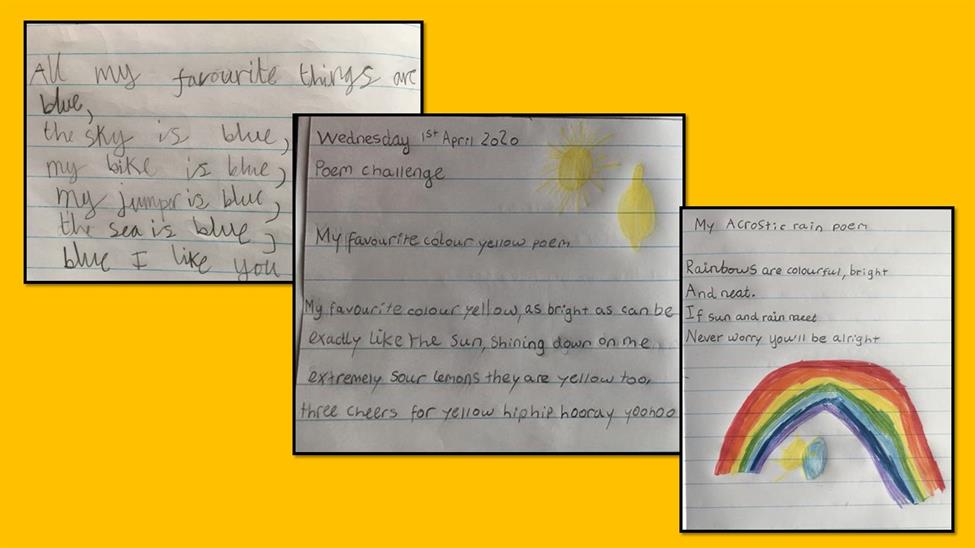 All my favourite things are
blue,
the sky is blue,
my bike is blue,
my jumper is blue,
the sea is blue,
blue I like you
Wednesday 1st April 2020
Poem challenge
My favourite colour yellow poem
My favourite colour yellow, as bright as can be
exactly like the sun, shining down on me
extremely sour lemons they are yellow too,
three cheers for yellow hiphip hooray yoohoo
My Acrostic rain poem
Rainbows are colourful, bright
And neat.
If sun and rain meet
Never worry you'll be alright